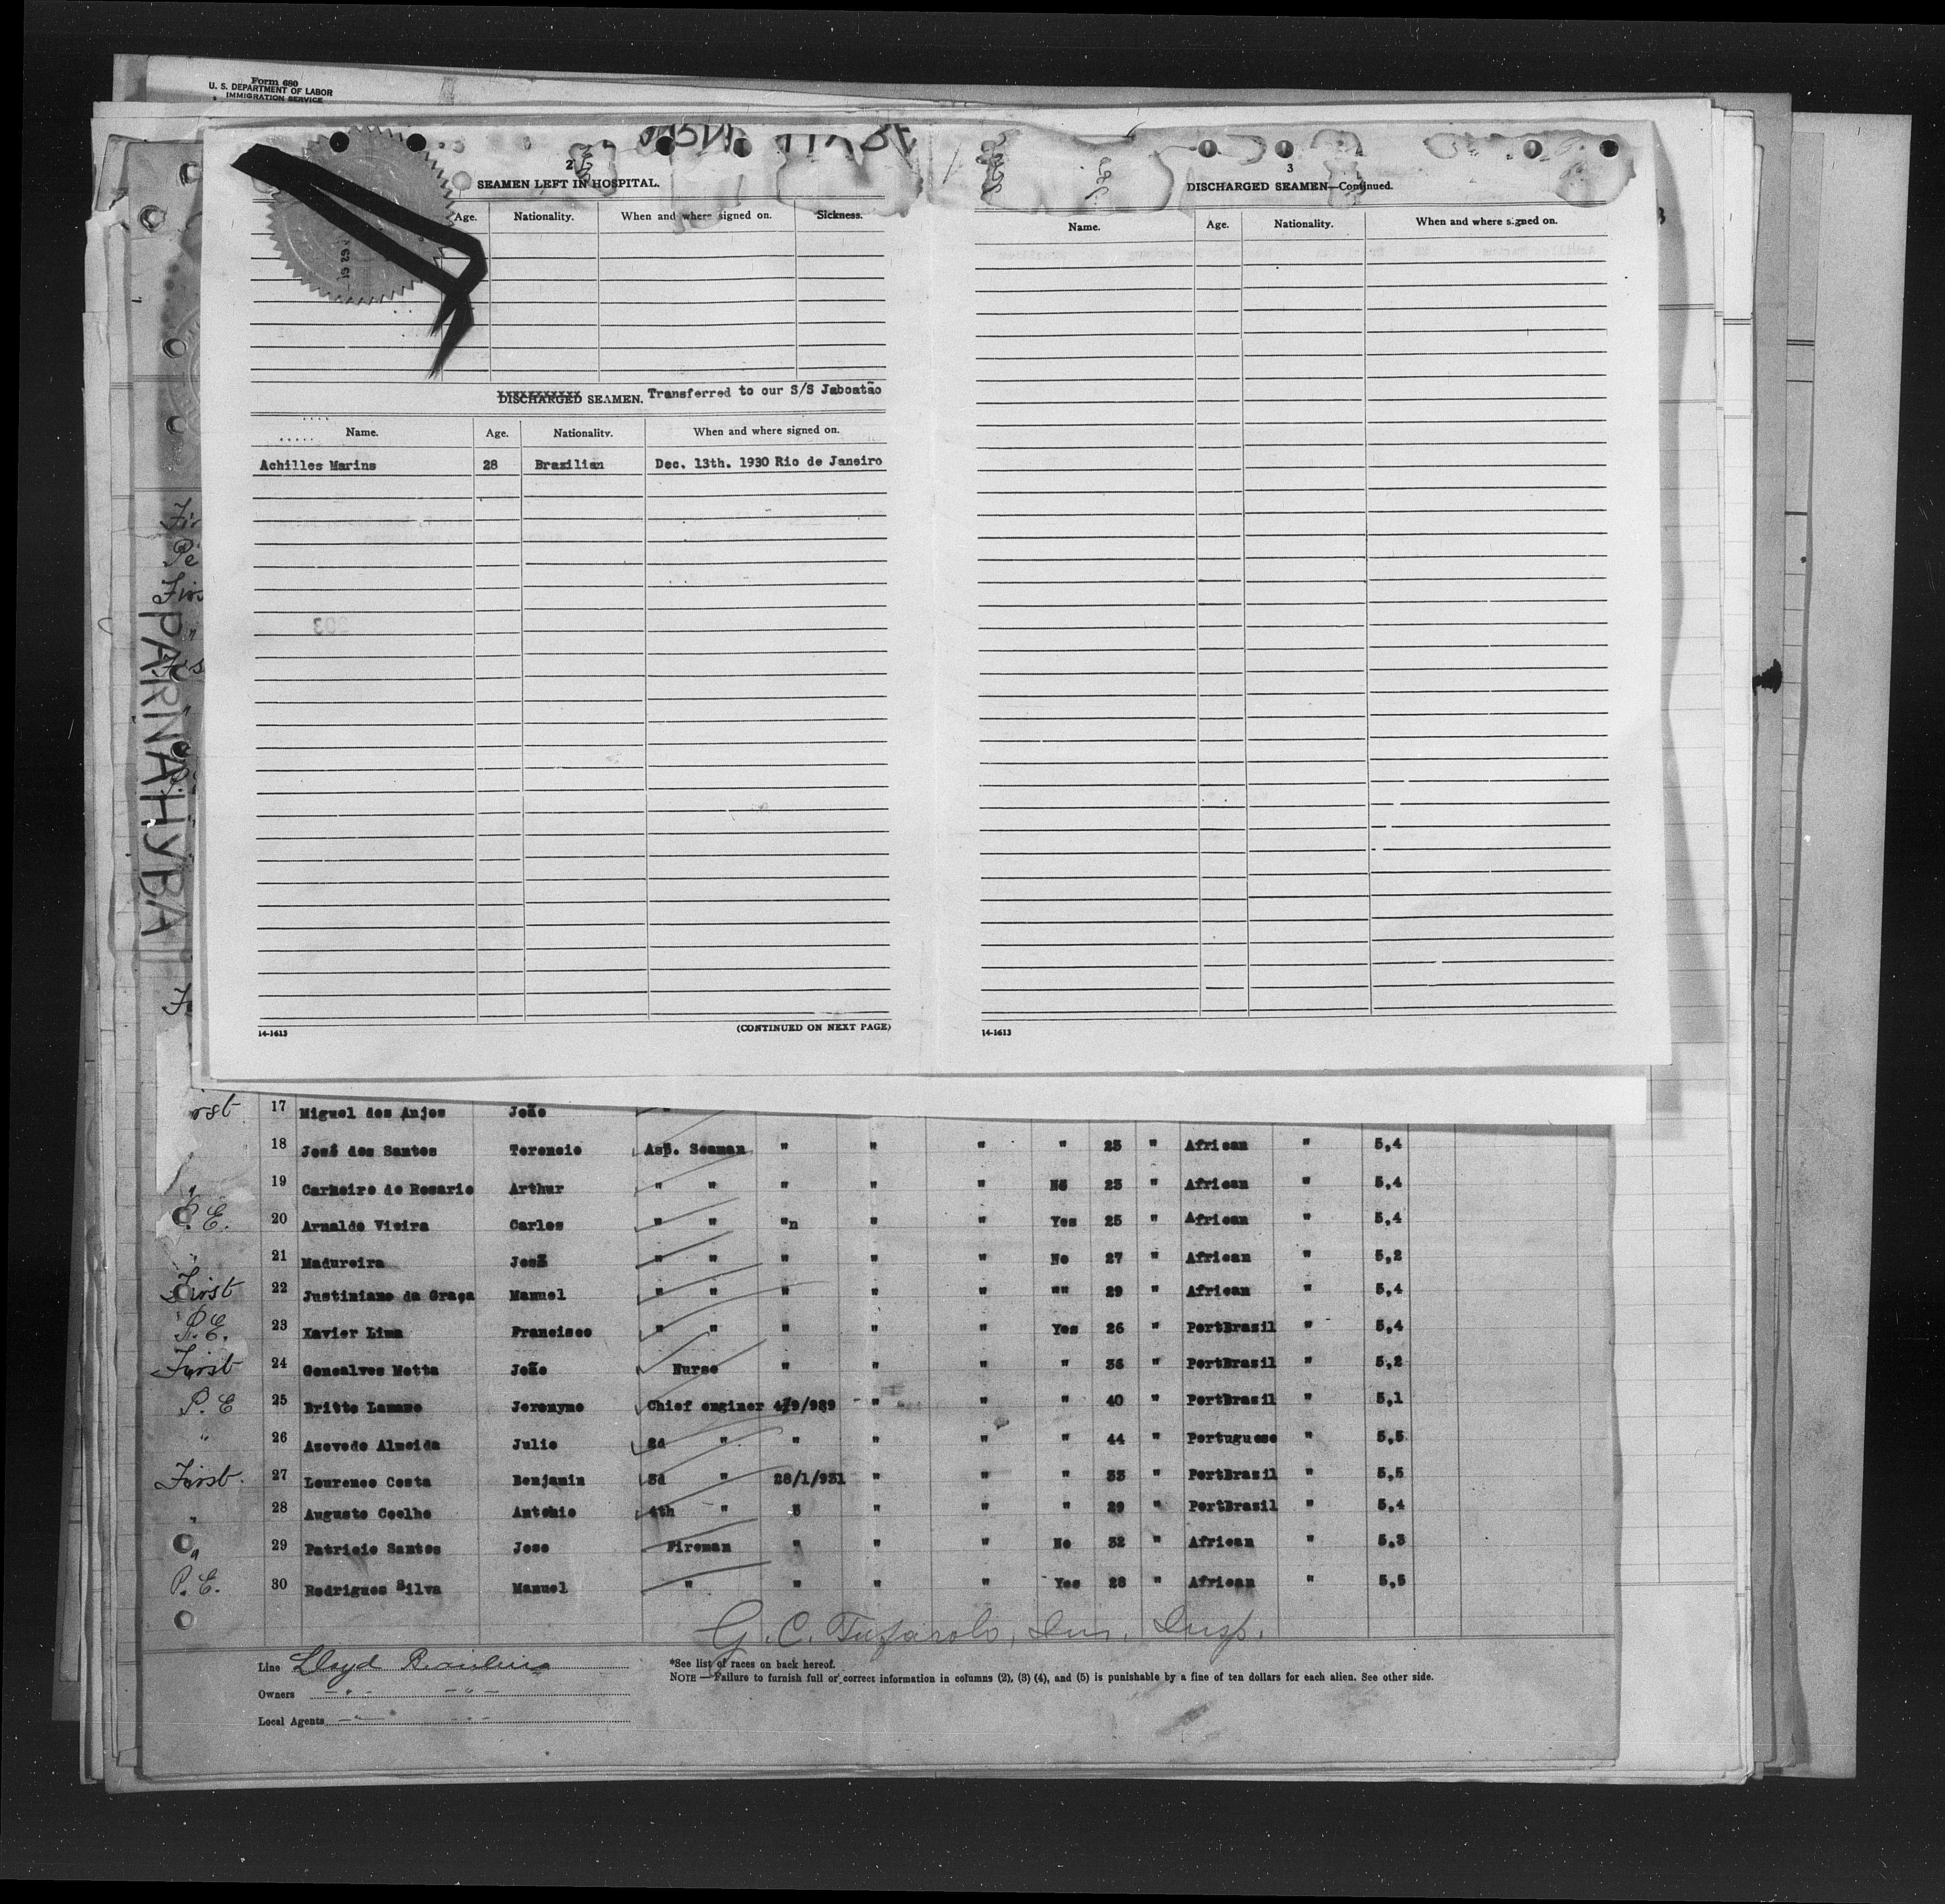 Form 680
U. S. DEPARTMENT OF LABOR
IMMIGRATION SERVICE
2
SEAMEN LEFT IN HOSPITAL.
Age. Nationality. When and where signed on. Sickness.
DISCHARGED SEAMEN. Transferred to our S/S Jaboatão
Name. Age. Nationality. When and where signed on.
Achilles Marins 28 Brazilian Dec. 13th. 1930 Rio de Janeiro
14-1613 (CONTINUED ON NEXT PAGE)
3
DISCHARGED SEAMEN—Continued.
Name. Age. Nationality. When and where signed on.
14-1613
PARNAHYBA
17 Miguel dos Anjos João
18 José dos Santos Terencio Asp. Seaman " " " " 23 " African " 5,4
" 19 Carneiro de Rosario Arthur " " " " " No 23 " African " 5,4
P.E. 20 Arnaldo Vieira Carlos " " "n " " Yes 25 " African " 5,4
" 21 Madureira José " " " " " No 27 " African " 5,2
First 22 Justiniano da Graça Manuel " " " " " "" 29 " African " 5,4
P.E. 23 Xavier Lima Francisco " " " " " Yes 26 " PortBrasil " 5,4
First 24 Goncalves Motta João Nurse " " " " 36 " PortBrasil " 5,2
P.E 25 Britto Lamame Jeronymo Chief enginer 4/9/929 " " " 40 " PortBrasil " 5,1
" 26 Azevedo Almeida Julio 2d " " " " " 44 " Portuguese " 5,5
First. 27 Lourenco Costa Benjamin 3d " 28/1/931 " " " 33 " PortBrasil " 5,5
" 28 Augusto Coelho Antonio 4th " " " " " 29 " PortBrasil " 5,4
" 29 Patricio Santos Jose Fireman " " " No 32 " African " 5,3
P.E. 30 Rodrigues Silva Manuel " " " " Yes 28 " African " 5,5
G. C. Tufarolo, Im. Insp.
Line Lloyd Brasileiro
Owners " "
Local Agents " "
*See list of races on back hereof.
NOTE—Failure to furnish full or correct information in columns (2), (3) (4), and (5) is punishable by a fine of ten dollars for each alien. See other side.